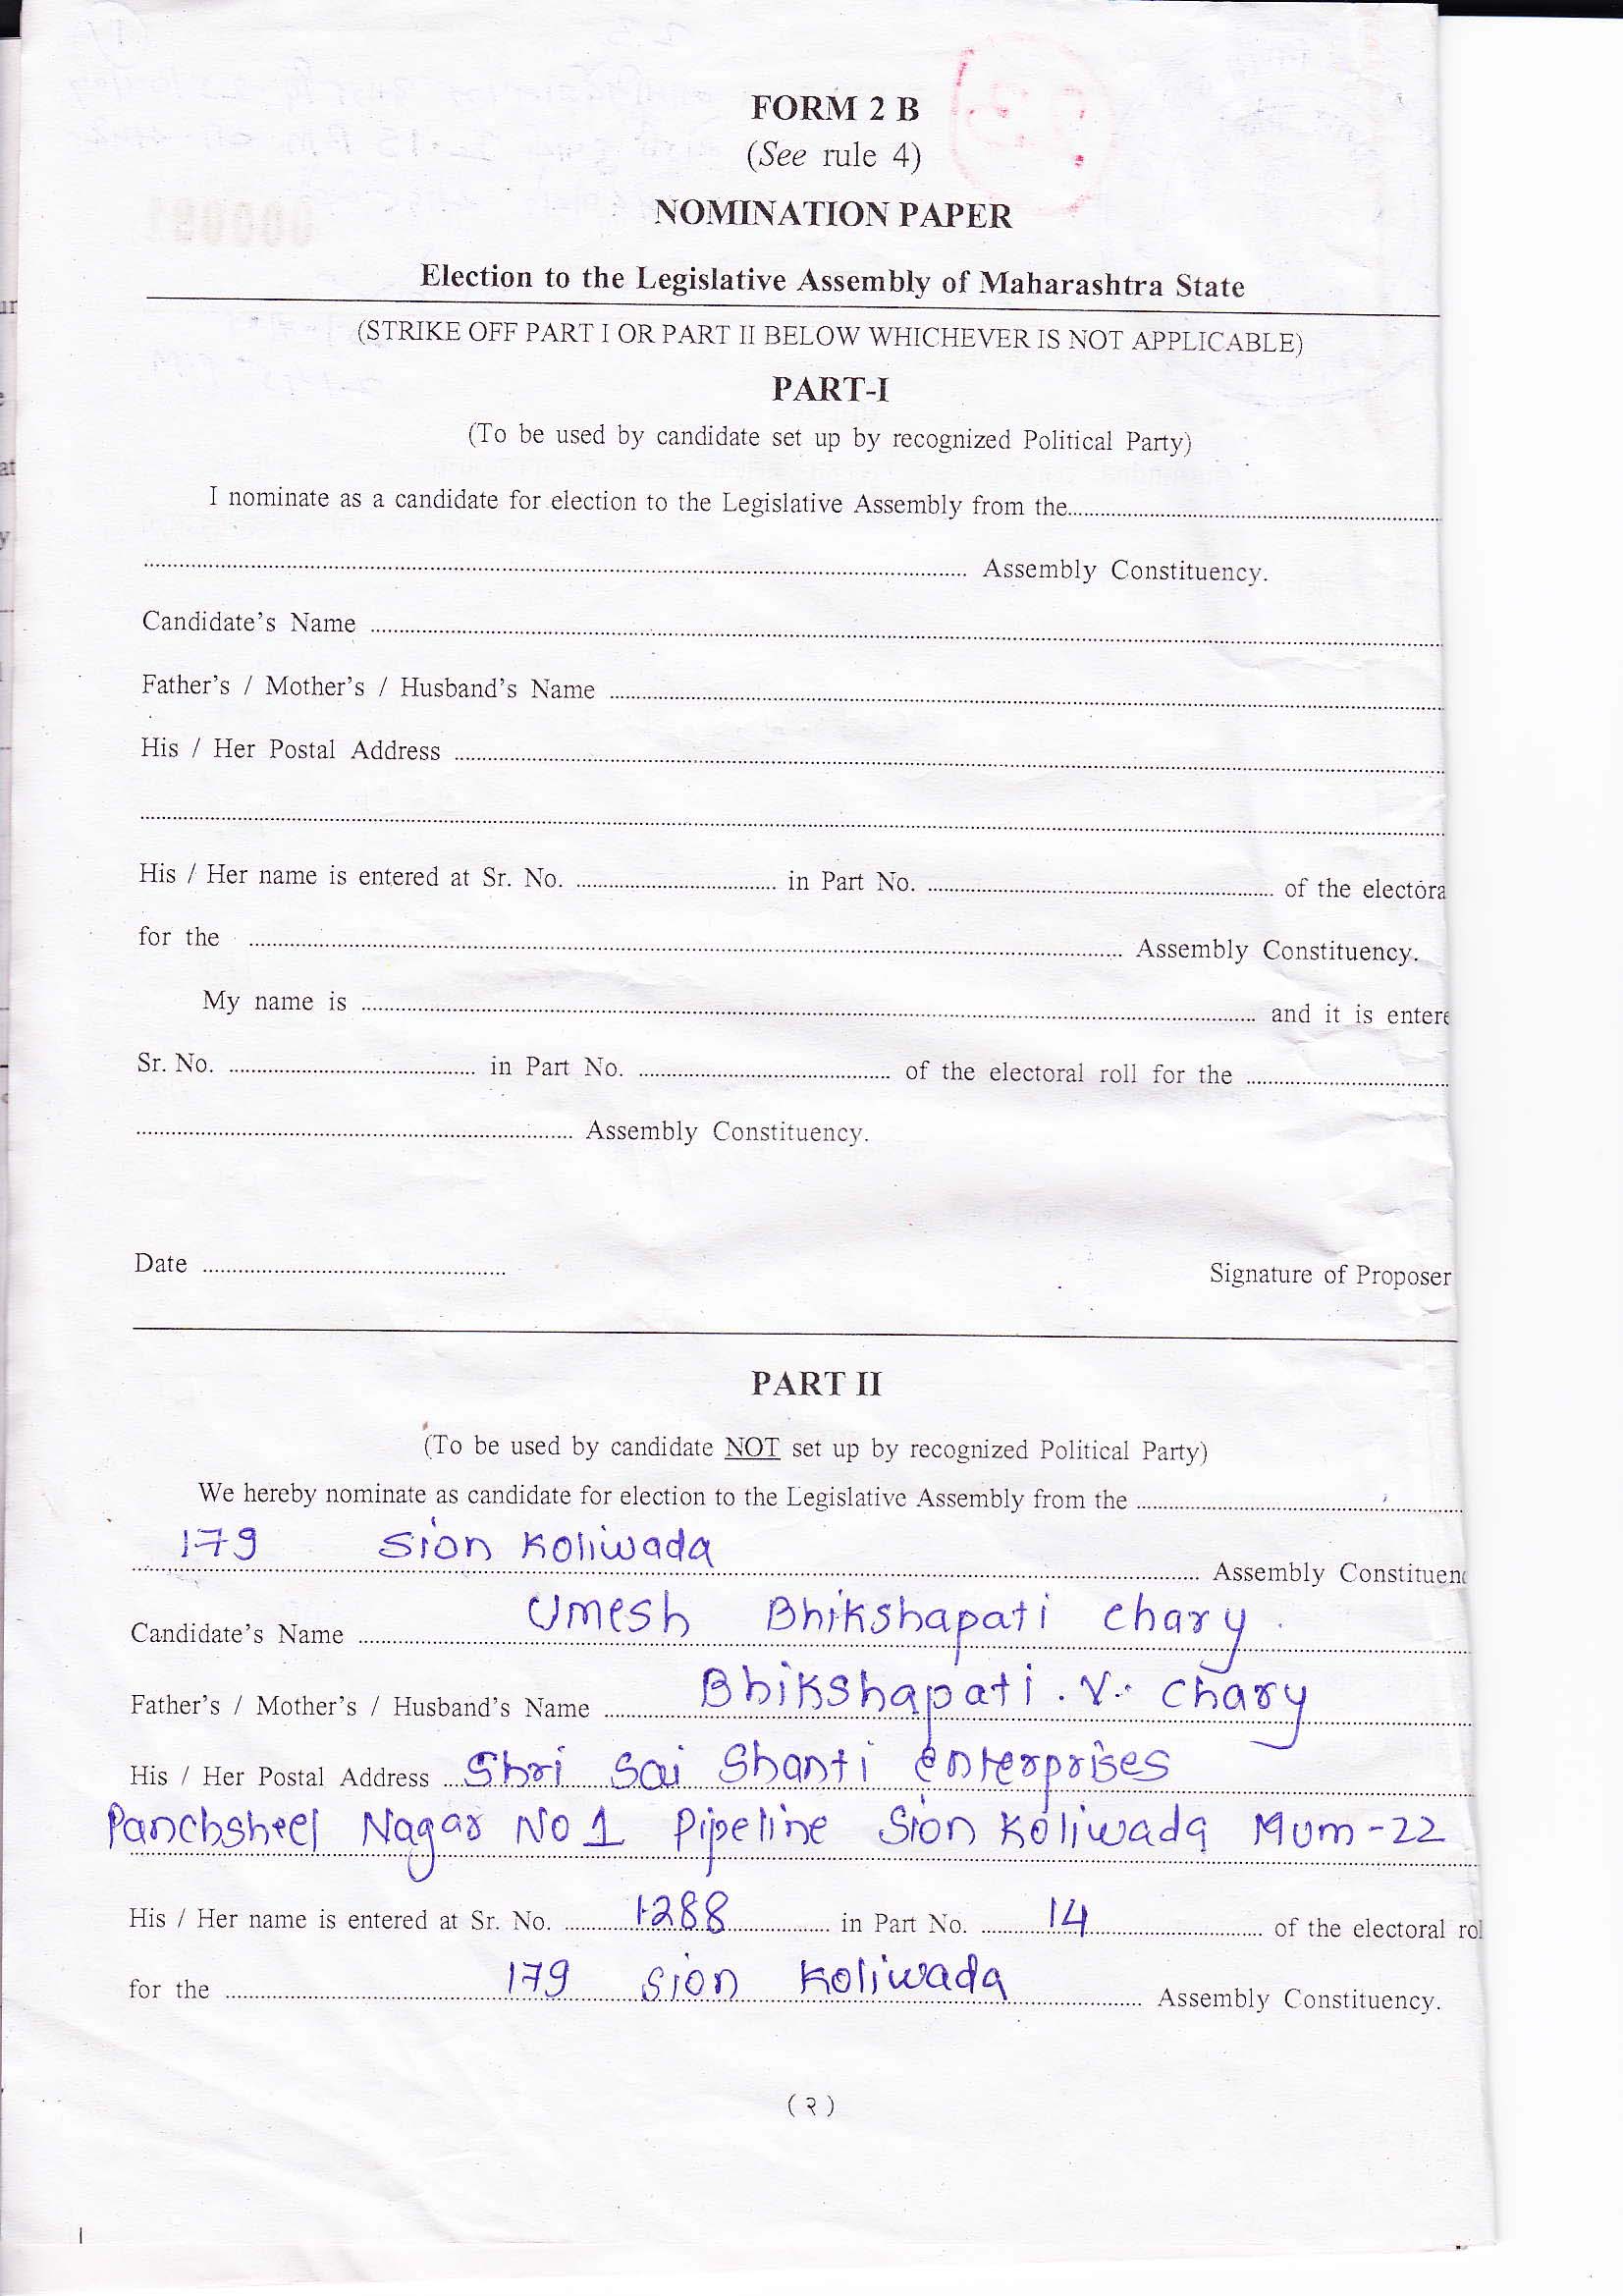 FORM 2 B
(See rule 4)
NOMINATION PAPER
Election to the Legislative Assembly of Maharashtra State
(STRIKE OFF PART I OR PART II BELOW WHICHEVER IS NOT APPLICABLE)
PART-I
(To be used by candidate set up by recognized Political Party)
I nominate as a candidate for election to the Legislative Assembly from the
Assembly Constituency.
Candidate's Name
Father's / Mother's / Husband's Name
His / Her Postal Address
His / Her name is entered at Sr. No. in Part No. of the electora
for the Assembly Constituency.
My name is and it is entere
Sr. No. in Part No. of the electoral roll for the
Assembly Constituency.
Date Signature of Proposer
PART II
(To be used by candidate NOT set up by recognized Political Party)
We hereby nominate as candidate for election to the Legislative Assembly from the
179 Sion Koliwada Assembly Constituenc
Candidate's Name Umesh Bhikshapati Chary.
Father's / Mother's / Husband's Name Bhikshapati. V. Chary
His / Her Postal Address Shri Sai Shanti Enterprises
Panchsheel Nagar No 1 Pipeline Sion Koliwada Mum-22
His / Her name is entered at Sr. No. 1288 in Part No. 14 of the electoral rol
for the 179 Sion Koliwada Assembly Constituency.
(२)